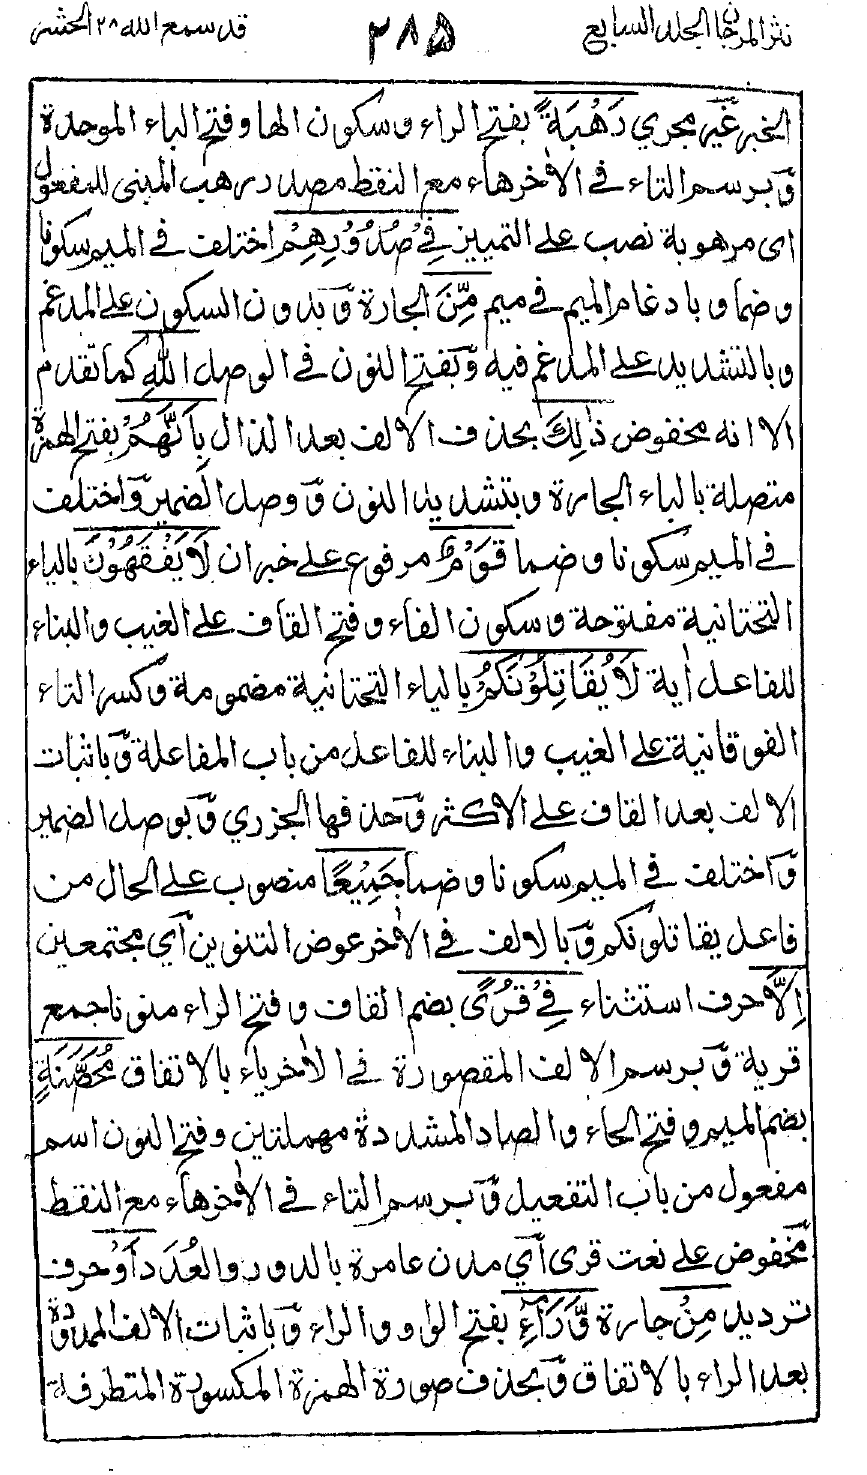 نثر المرجان المجلد السابع ٢٨٥ قد سمع الله ٢٨ الحشر
الخبر غير مجري رَهْبَةً بفتح الراء وسكون الها وفتح الباء الموحدة
وبرسم التاء في الاٰخرهاء مع النقط مصدر رهب المبنى للمفعول
اى مرهوبة نصب على التمييز فِيْ صُدُوْرِهِمْ اختلف في الميم سكونا
وضما وبادغام الميم في ميم مِّنَ الجارة وبدون السكون على المدغم
وبالتشديد على المدغم فيه وبفتح النون في الوصل اللهِ كما تقدم
الا انه مخفوض ذٰلِكَ بحذف الالف بعد الذال بِاَنَّهُمْ بفتح الهمزة
متصلة بالباء الجارة وبتشديد النون ووصل الضمير واختلف
في الميم سكونا وضما قَوْمٌ مرفوع على خبر ان لَّا يَفْقَهُوْنَ بالياء
التحتانية مفتوحة وسكون الفاء وفتح القاف على الغيب والبناء
للفاعل اٰية لَا يُقَاتِلُوْنَكُمْ بالياء التحتانية مضمومة وكسر التاء
الفوقانية على الغيب والبناء للفاعل من باب المفاعلة وباثبات
الالف بعد القاف على الاكثر وحذفها الجزري وبوصل الضمير
واختلف في الميم سكونا وضما جَمِيْعًا منصوب على الحال من
فاعل يقاتلونكم وبالالف في الاٰخر عوض التنوين أي مجتمعين
اِلَّا حرف استثناء فِيْ قُرًى بضم القاف وفتح الراء منونا جمع
قرية وبرسم الالف المقصورة في الاٰخرياء بالاتفاق مُحَصَّنَةٍ
بضم الميم وفتح الحاء والصاد المشددة مهملتين وفتح النون اسم
مفعول من باب التفعيل وبرسم التاء في الاٰخرهاء مع النقط
مخفوض على نعت قرى أي مدن عامرة بالدور والعُدَد اَوْ حرف
ترديد مِنْ جارة وَّرَآءِ بفتح الواو والراء وباثبات الالف الممدودة
بعد الراء بالاتفاق وبحذف صورة الهمزة المكسورة المتطرفة